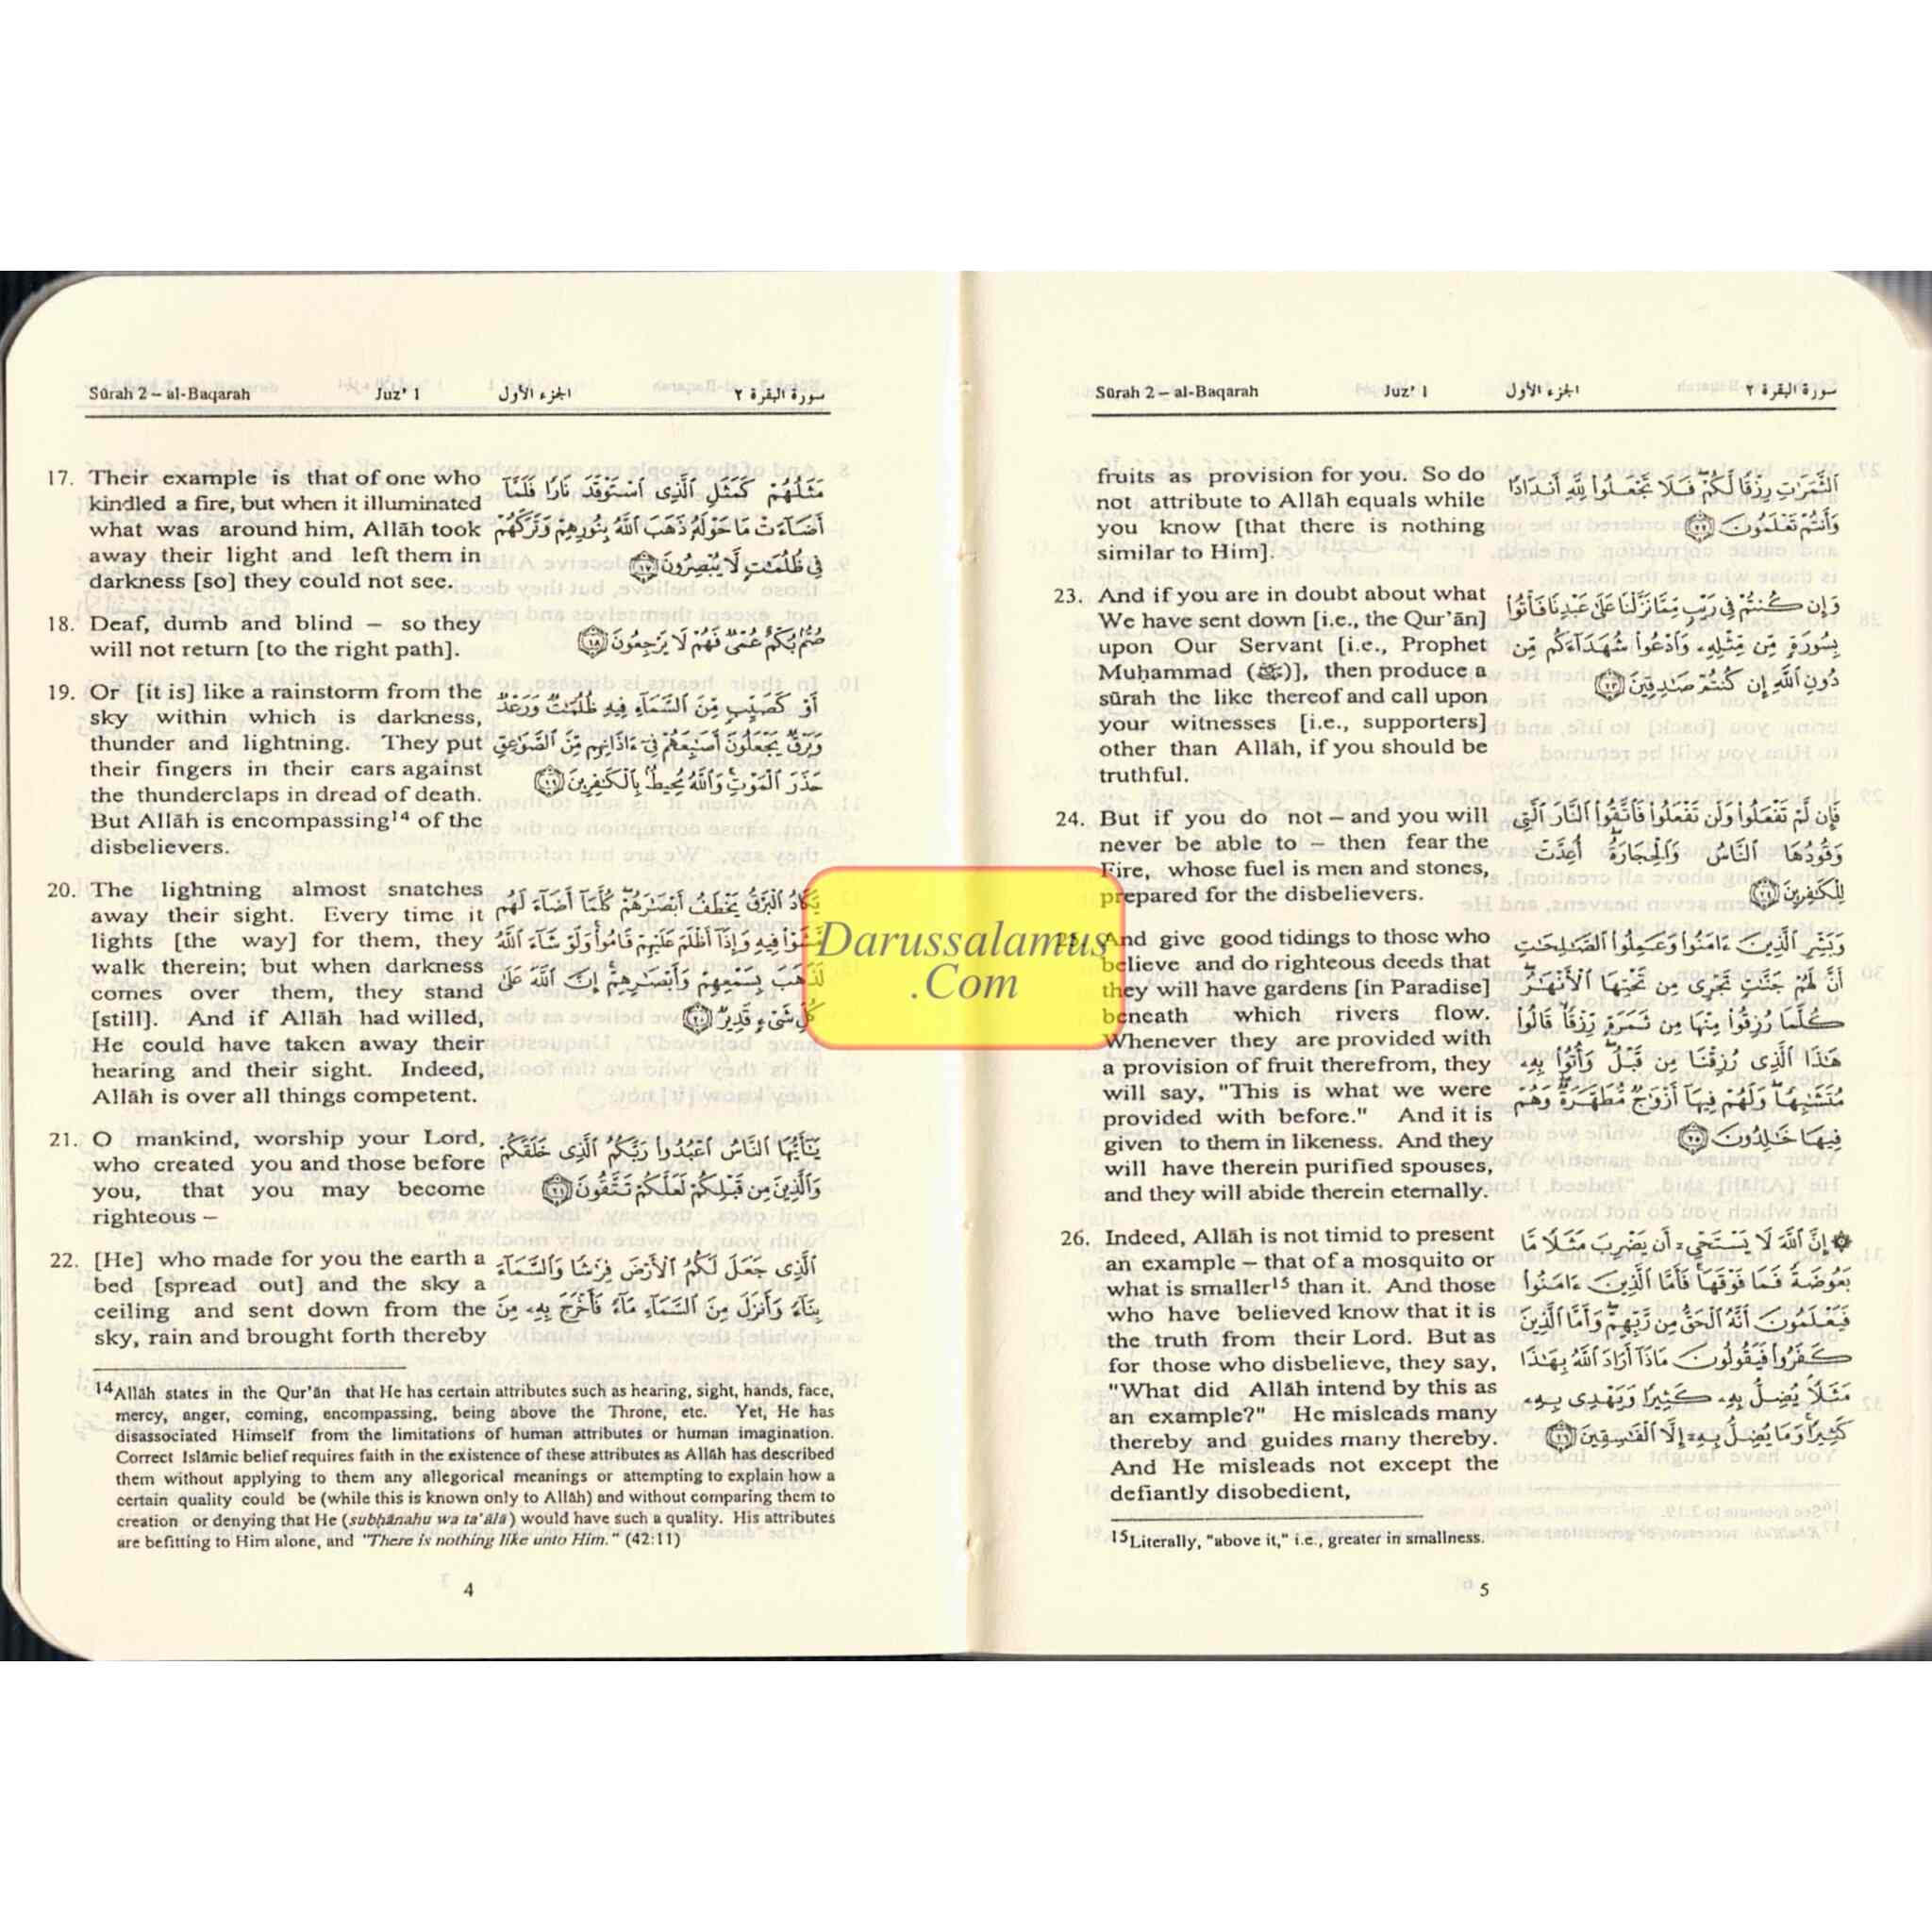 Sūrah 2 – al-Baqarah Juz' 1 الجزء الأول سورة البقرة ٢
17. Their example is that of one who
kindled a fire, but when it illuminated
what was around him, Allāh took
away their light and left them in
darkness [so] they could not see.
مَثَلُهُمْ كَمَثَلِ ٱلَّذِى ٱسْتَوْقَدَ نَارًا فَلَمَّآ
أَضَآءَتْ مَا حَوْلَهُۥ ذَهَبَ ٱللَّهُ بِنُورِهِمْ وَتَرَكَهُمْ
فِى ظُلُمَٰتٍ لَّا يُبْصِرُونَ ١٧
18. Deaf, dumb and blind – so they
will not return [to the right path].
صُمٌّۢ بُكْمٌ عُمْىٌ فَهُمْ لَا يَرْجِعُونَ ١٨
19. Or [it is] like a rainstorm from the
sky within which is darkness,
thunder and lightning. They put
their fingers in their ears against
the thunderclaps in dread of death.
But Allāh is encompassing14 of the
disbelievers.
أَوْ كَصَيِّبٍ مِّنَ ٱلسَّمَآءِ فِيهِ ظُلُمَٰتٌ وَرَعْدٌ
وَبَرْقٌ يَجْعَلُونَ أَصَٰبِعَهُمْ فِىٓ ءَاذَانِهِم مِّنَ ٱلصَّوَٰعِقِ
حَذَرَ ٱلْمَوْتِ وَٱللَّهُ مُحِيطٌۢ بِٱلْكَٰفِرِينَ ١٩
20. The lightning almost snatches
away their sight. Every time it
lights [the way] for them, they
walk therein; but when darkness
comes over them, they stand
[still]. And if Allāh had willed,
He could have taken away their
hearing and their sight. Indeed,
Allāh is over all things competent.
يَكَادُ ٱلْبَرْقُ يَخْطَفُ أَبْصَٰرَهُمْ كُلَّمَآ أَضَآءَ لَهُم
مَّشَوْا۟ فِيهِ وَإِذَآ أَظْلَمَ عَلَيْهِمْ قَامُوا۟ وَلَوْ شَآءَ ٱللَّهُ
لَذَهَبَ بِسَمْعِهِمْ وَأَبْصَٰرِهِمْ إِنَّ ٱللَّهَ عَلَىٰ
كُلِّ شَىْءٍ قَدِيرٌ ٢٠
21. O mankind, worship your Lord,
who created you and those before
you, that you may become
righteous –
يَٰٓأَيُّهَا ٱلنَّاسُ ٱعْبُدُوا۟ رَبَّكُمُ ٱلَّذِى خَلَقَكُمْ
وَٱلَّذِينَ مِن قَبْلِكُمْ لَعَلَّكُمْ تَتَّقُونَ ٢١
22. [He] who made for you the earth a
bed [spread out] and the sky a
ceiling and sent down from the
sky, rain and brought forth thereby
ٱلَّذِى جَعَلَ لَكُمُ ٱلْأَرْضَ فِرَٰشًا وَٱلسَّمَآءَ
بِنَآءً وَأَنزَلَ مِنَ ٱلسَّمَآءِ مَآءً فَأَخْرَجَ بِهِۦ مِنَ
14Allāh states in the Qur'ān that He has certain attributes such as hearing, sight, hands, face,
mercy, anger, coming, encompassing, being above the Throne, etc. Yet, He has
disassociated Himself from the limitations of human attributes or human imagination.
Correct Islāmic belief requires faith in the existence of these attributes as Allāh has described
them without applying to them any allegorical meanings or attempting to explain how a
certain quality could be (while this is known only to Allāh) and without comparing them to
creation or denying that He (subḥānahu wa ta'ālā) would have such a quality. His attributes
are befitting to Him alone, and "There is nothing like unto Him." (42:11)
4
Darussalamus
.Com
Sūrah 2 – al-Baqarah Juz' 1 الجزء الأول سورة البقرة ٢
fruits as provision for you. So do
not attribute to Allāh equals while
you know [that there is nothing
similar to Him].
ٱلثَّمَرَٰتِ رِزْقًا لَّكُمْ فَلَا تَجْعَلُوا۟ لِلَّهِ أَندَادًا
وَأَنتُمْ تَعْلَمُونَ ٢٢
23. And if you are in doubt about what
We have sent down [i.e., the Qur'ān]
upon Our Servant [i.e., Prophet
Muḥammad (ﷺ)], then produce a
sūrah the like thereof and call upon
your witnesses [i.e., supporters]
other than Allāh, if you should be
truthful.
وَإِن كُنتُمْ فِى رَيْبٍ مِّمَّا نَزَّلْنَا عَلَىٰ عَبْدِنَا فَأْتُوا۟
بِسُورَةٍ مِّن مِّثْلِهِۦ وَٱدْعُوا۟ شُهَدَآءَكُم مِّن
دُونِ ٱللَّهِ إِن كُنتُمْ صَٰدِقِينَ ٢٣
24. But if you do not – and you will
never be able to – then fear the
Fire, whose fuel is men and stones,
prepared for the disbelievers.
فَإِن لَّمْ تَفْعَلُوا۟ وَلَن تَفْعَلُوا۟ فَٱتَّقُوا۟ ٱلنَّارَ ٱلَّتِى
وَقُودُهَا ٱلنَّاسُ وَٱلْحِجَارَةُ أُعِدَّتْ
لِلْكَٰفِرِينَ ٢٤
25. And give good tidings to those who
believe and do righteous deeds that
they will have gardens [in Paradise]
beneath which rivers flow.
Whenever they are provided with
a provision of fruit therefrom, they
will say, "This is what we were
provided with before." And it is
given to them in likeness. And they
will have therein purified spouses,
and they will abide therein eternally.
وَبَشِّرِ ٱلَّذِينَ ءَامَنُوا۟ وَعَمِلُوا۟ ٱلصَّٰلِحَٰتِ
أَنَّ لَهُمْ جَنَّٰتٍ تَجْرِى مِن تَحْتِهَا ٱلْأَنْهَٰرُ
كُلَّمَا رُزِقُوا۟ مِنْهَا مِن ثَمَرَةٍ رِّزْقًا قَالُوا۟
هَٰذَا ٱلَّذِى رُزِقْنَا مِن قَبْلُ وَأُتُوا۟ بِهِۦ
مُتَشَٰبِهًا وَلَهُمْ فِيهَآ أَزْوَٰجٌ مُّطَهَّرَةٌ وَهُمْ
فِيهَا خَٰلِدُونَ ٢٥
26. Indeed, Allāh is not timid to present
an example – that of a mosquito or
what is smaller15 than it. And those
who have believed know that it is
the truth from their Lord. But as
for those who disbelieve, they say,
"What did Allāh intend by this as
an example?" He misleads many
thereby and guides many thereby.
And He misleads not except the
defiantly disobedient,
۞ إِنَّ ٱللَّهَ لَا يَسْتَحْىِۦٓ أَن يَضْرِبَ مَثَلًا مَّا
بَعُوضَةً فَمَا فَوْقَهَا فَأَمَّا ٱلَّذِينَ ءَامَنُوا۟
فَيَعْلَمُونَ أَنَّهُ ٱلْحَقُّ مِن رَّبِّهِمْ وَأَمَّا ٱلَّذِينَ
كَفَرُوا۟ فَيَقُولُونَ مَاذَآ أَرَادَ ٱللَّهُ بِهَٰذَا
مَثَلًا يُضِلُّ بِهِۦ كَثِيرًا وَيَهْدِى بِهِۦ
كَثِيرًا وَمَا يُضِلُّ بِهِۦٓ إِلَّا ٱلْفَٰسِقِينَ ٢٦
15Literally, "above it," i.e., greater in smallness.
5